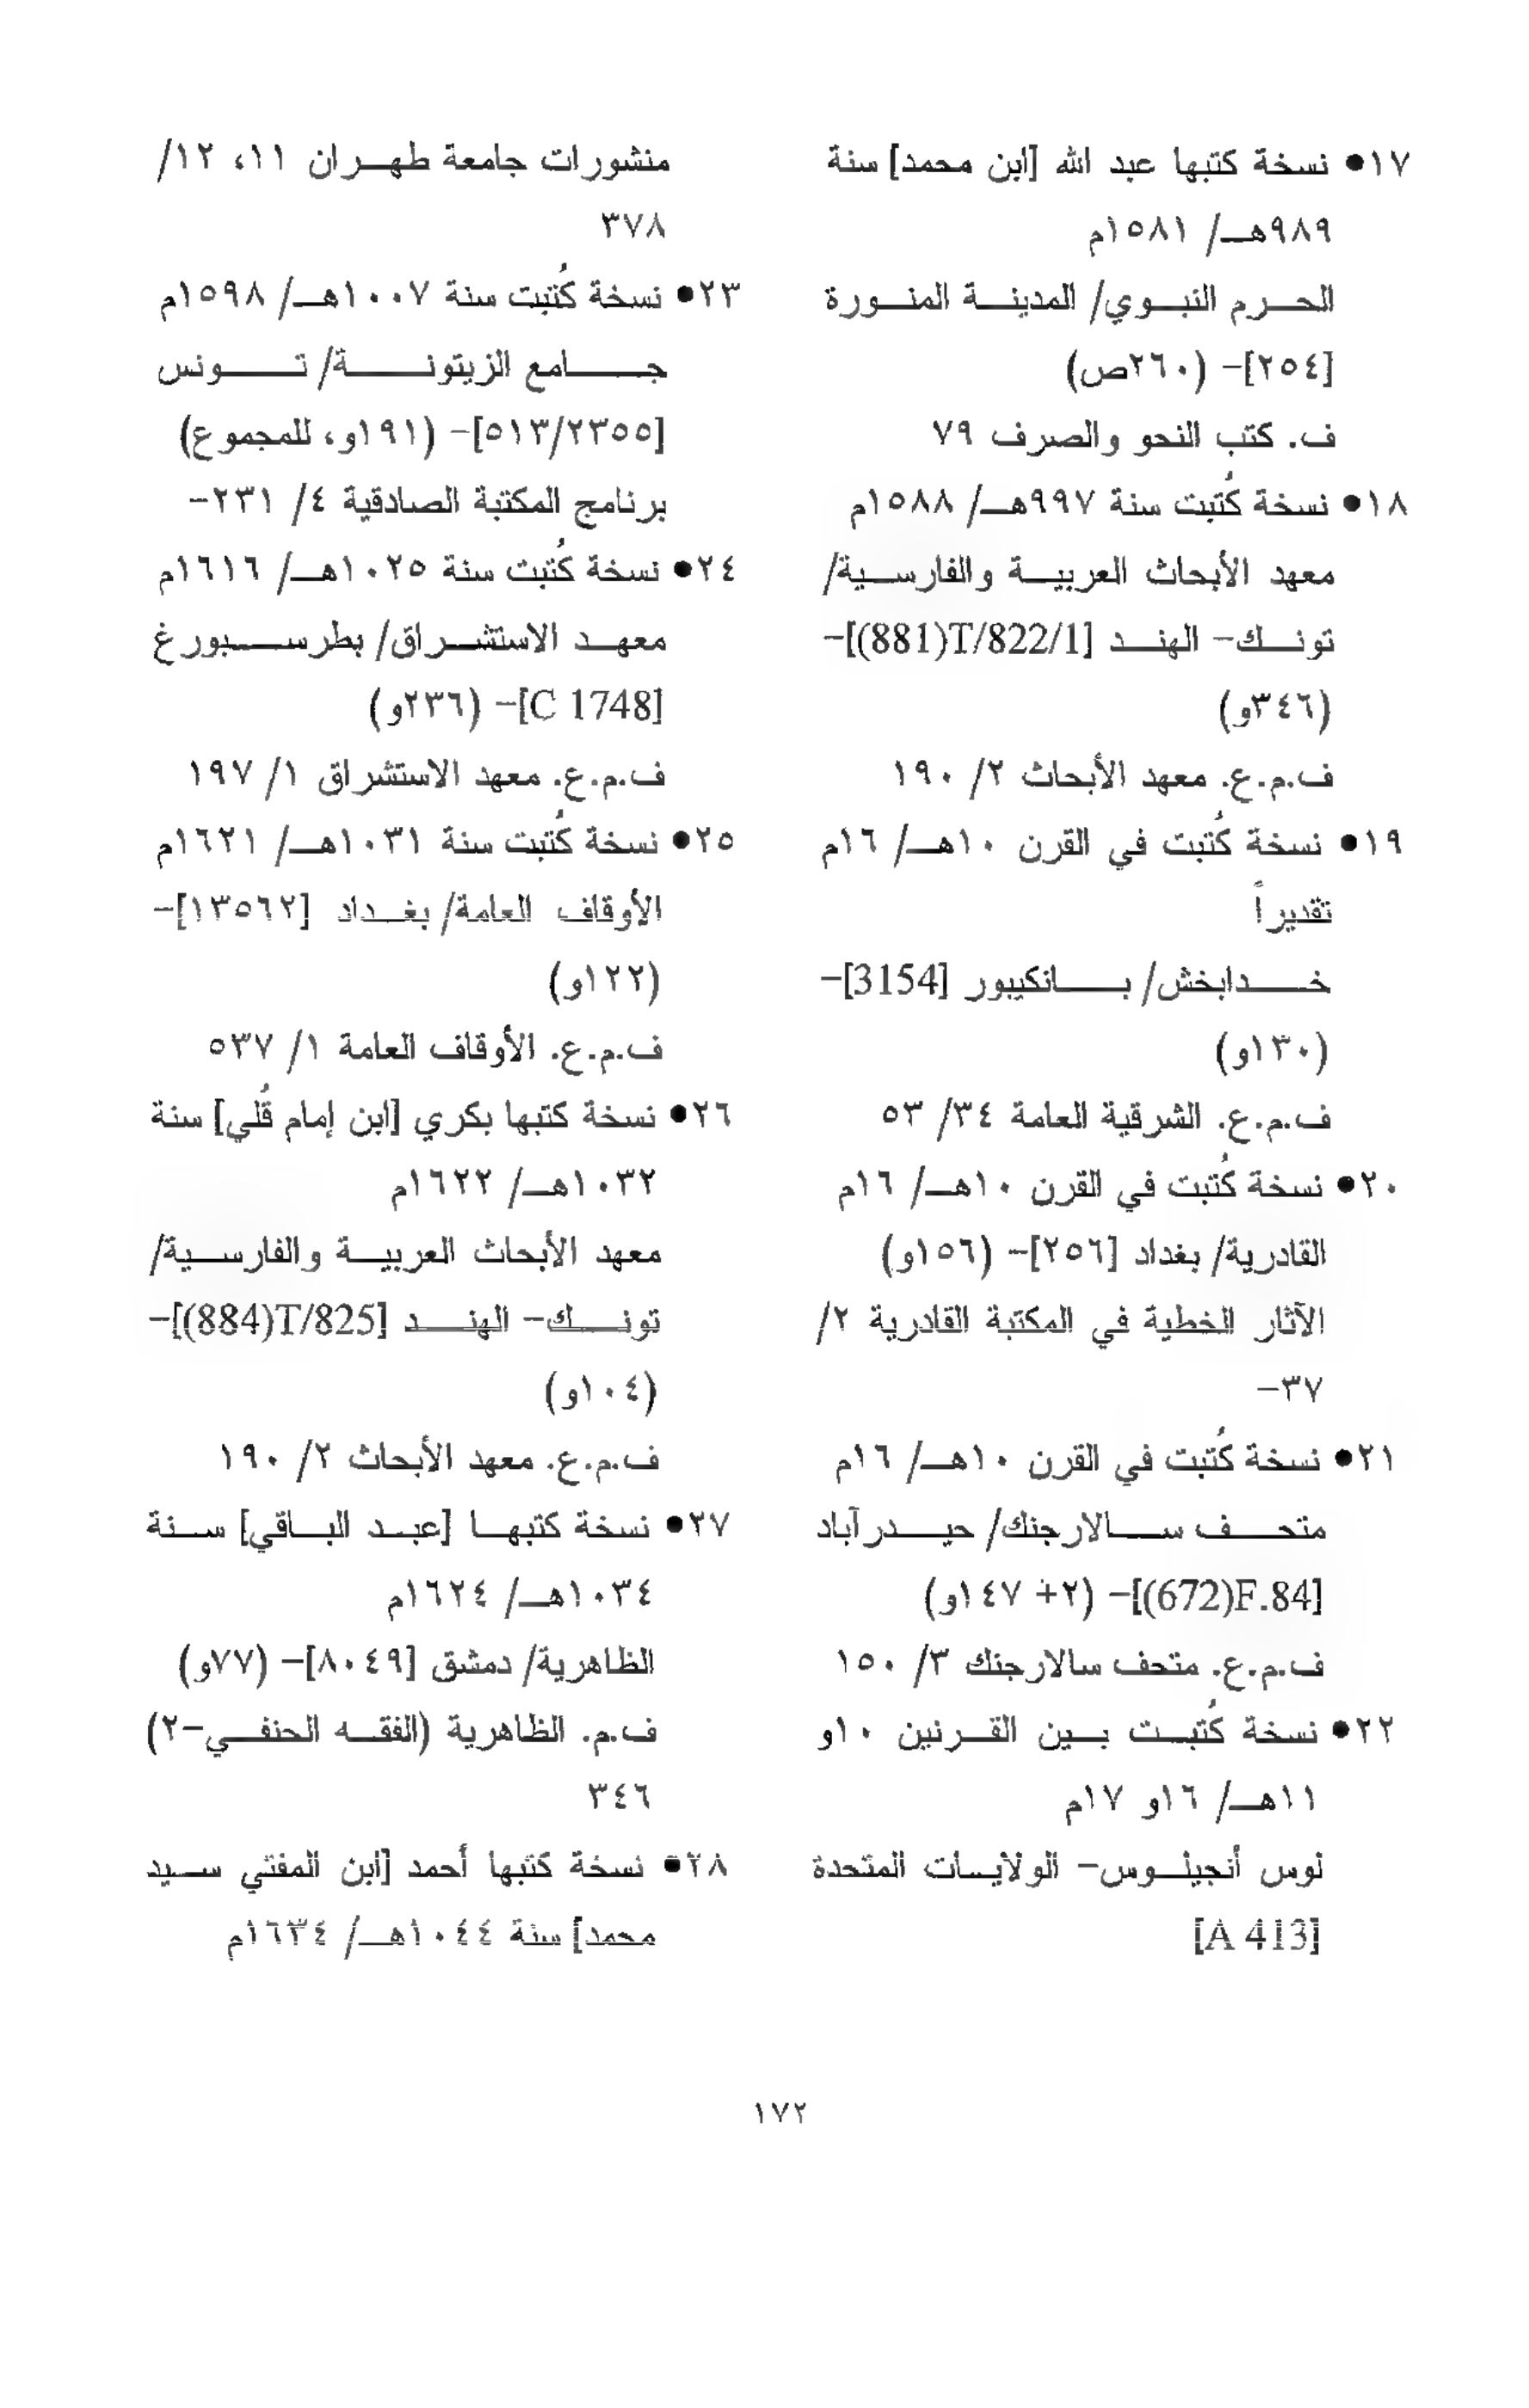 ١٧● نسخة كتبها عبد الله [ابن محمد] سنة
٩٨٩هـ/ ١٥٨١م
الحرم النبوي/ المدينة المنورة
[٢٥٤]- (٢٦٠ص)
ف. كتب النحو والصرف ٧٩
١٨● نسخة كُتبت سنة ٩٩٧هـ/ ١٥٨٨م
معهد الأبحاث العربية والفارسية/
تونك- الهند [T/822/1(881)]-
(٣٤٦و)
ف.م.ع. معهد الأبحاث ٢/ ١٩٠
١٩● نسخة كُتبت في القرن ١٠هـ/ ١٦م
تقديراً
خدابخش/ بانكيبور [3154]-
(١٣٠و)
ف.م.ع. الشرقية العامة ٣٤/ ٥٣
٢٠● نسخة كُتبت في القرن ١٠هـ/ ١٦م
القادرية/ بغداد [٢٥٦]- (١٥٦و)
الآثار الخطية في المكتبة القادرية ٢/
٣٧-
٢١● نسخة كُتبت في القرن ١٠هـ/ ١٦م
متحف سالارجنك/ حيدرآباد
[F.84(672)]- (٢+ ١٤٧و)
ف.م.ع. متحف سالارجنك ٣/ ١٥٠
٢٢● نسخة كُتبت بين القرنين ١٠و
١١هـ/ ١٦و ١٧م
لوس أنجيلوس- الولايات المتحدة
[A 413]
منشورات جامعة طهران ١١، ١٢/
٣٧٨
٢٣● نسخة كُتبت سنة ١٠٠٧هـ/ ١٥٩٨م
جامع الزيتونة/ تونس
[٥١٣/٢٣٥٥]- (١٩١و، للمجموع)
برنامج المكتبة الصادقية ٤/ ٢٣١-
٢٤● نسخة كُتبت سنة ١٠٢٥هـ/ ١٦١٦م
معهد الاستشراق/ بطرسبورغ
[C 1748]- (٢٣٦و)
ف.م.ع. معهد الاستشراق ١/ ١٩٧
٢٥● نسخة كُتبت سنة ١٠٣١هـ/ ١٦٢١م
الأوقاف العامة/ بغداد [١٣٥٦٢]-
(١٢٢و)
ف.م.ع. الأوقاف العامة ١/ ٥٣٧
٢٦● نسخة كتبها بكري [ابن إمام قُلي] سنة
١٠٣٢هـ/ ١٦٢٢م
معهد الأبحاث العربية والفارسية/
تونك- الهند [T/825(884)]-
(١٠٤و)
ف.م.ع. معهد الأبحاث ٢/ ١٩٠
٢٧● نسخة كتبها [عبد الباقي] سنة
١٠٣٤هـ/ ١٦٢٤م
الظاهرية/ دمشق [٨٠٤٩]- (٧٧و)
ف.م. الظاهرية (الفقه الحنفي-٢)
٣٤٦
٢٨● نسخة كتبها أحمد [ابن المفتي سيد
محمد] سنة ١٠٤٤هـ/ ١٦٣٤م
١٧٢